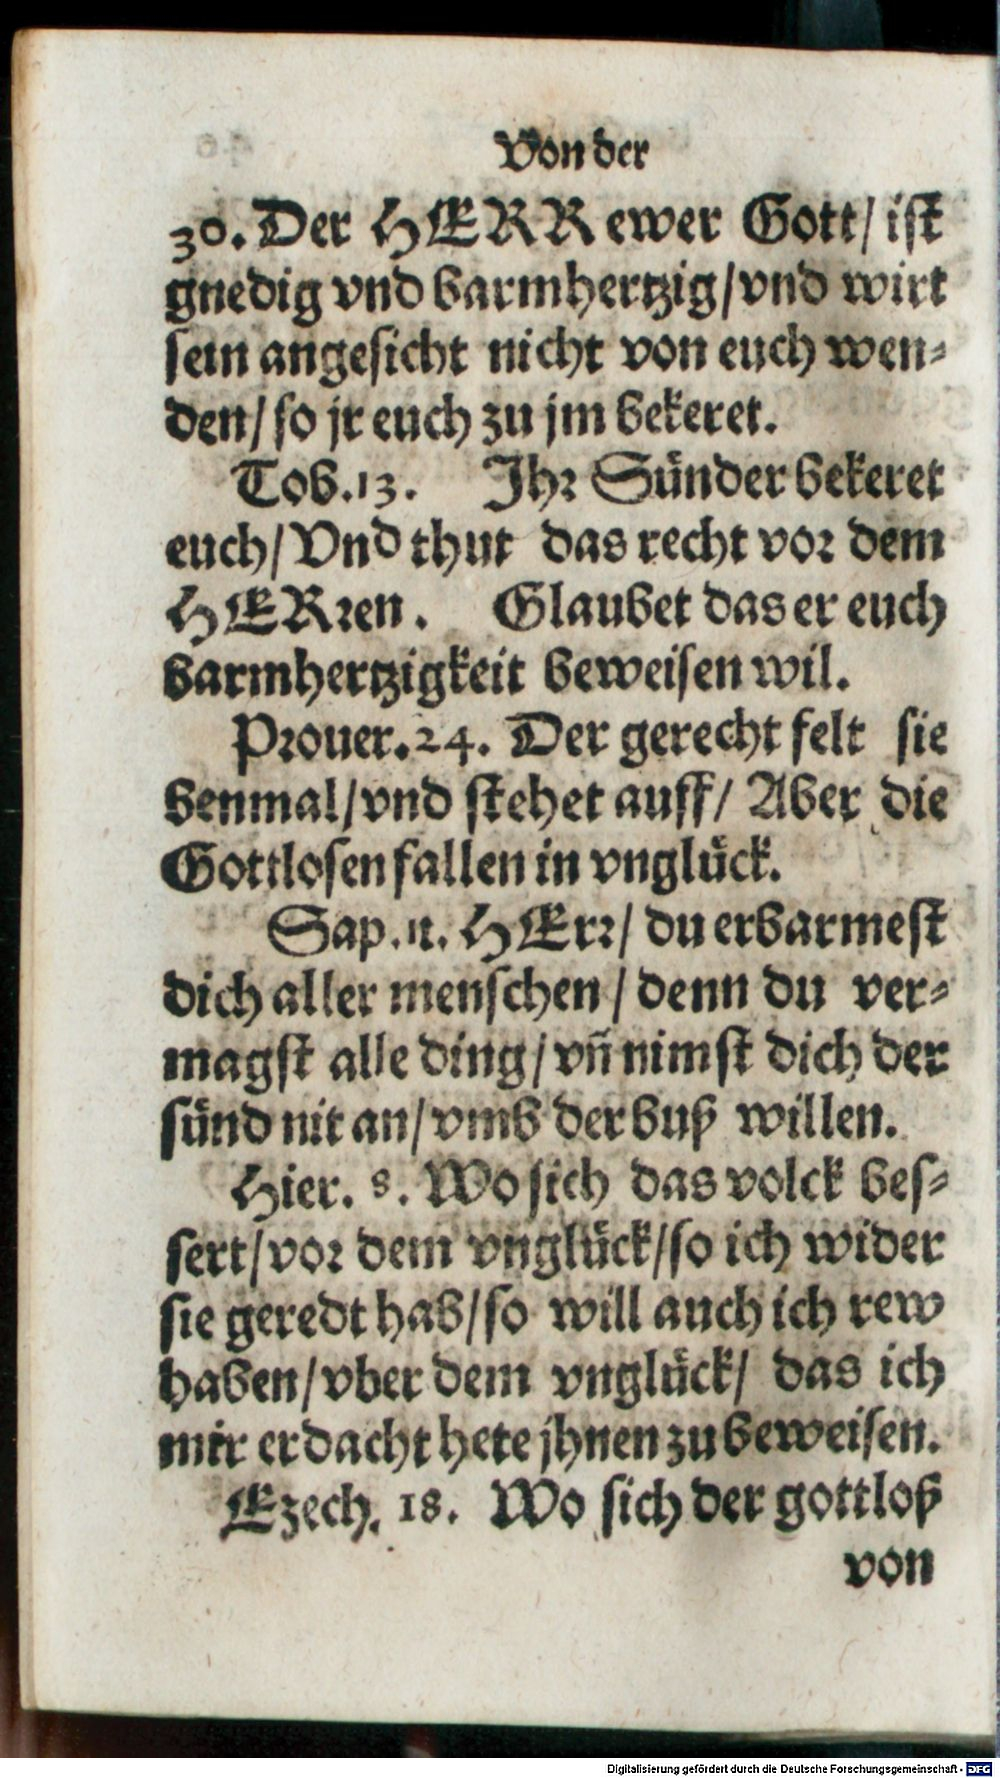 Von der
30. Der HERR ewer Gott/ ist
gnedig vnd barmhertzig/vnd wirt
sein angesicht nicht von euch wen⸗
den/ so jr euch zu jm bekeret.
Tob.13. Ihr Sünder bekeret
euch/ Vnd thut das recht vor dem
HERren. Glaubet das er euch
barmhertzigkeit beweisen wil.
Prouer.24. Der gerecht felt sie
benmal/vnd stehet auff/ Aber die
Gottlosen fallen in vnglück.
Sap.11. HErr/ du erbarmest
dich aller menschen/ denn du ver⸗
magst alle ding/ vñ nimst dich der
sünd nit an/ vmb der buß willen.
Hier. 8. Wo sich das volck bes⸗
sert/vor dem vnglück/so ich wider
sie geredt hab/so will auch ich rew
haben/vber dem vnglück/ das ich
mir erdacht hete jhnen zu beweisen.
Ezech. 18. Wo sich der gottloß
von
Digitalisierung gefördert durch die Deutsche Forschungsgemeinschaft - DFG